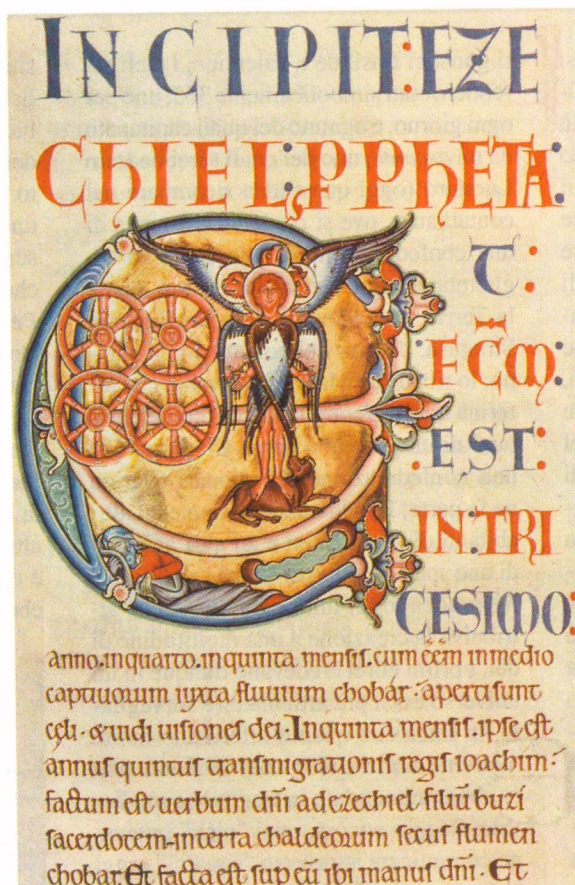 INCIPIT:EZE
CHIEL;PPHETA:
ET:
FC̅M:
EST:
IN:TRI
CESIMO:
anno.inquarto.inquinta mensis.cum ee̅m inmedio
captiuorum iuxta fluuium chobár: aperti sunt
cęli. & uidi uisiones dei. In quinta mensis.ipse est
annus quintus transmigrationis regis ioachim:
factum est uerbum dn̅i ad ezechiel filiu̅ buzi
sacerdotem.interra chaldeorum secus flumen
chobar. Et facta est sup eu̅ ibi manus dn̅i. Et